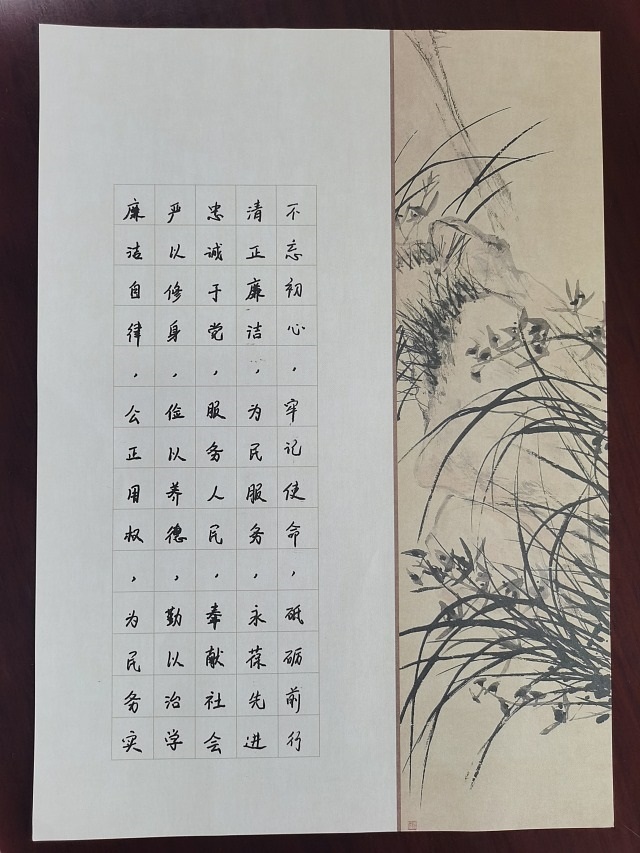 不忘初心，牢记使命，砥砺前行
清正廉洁，为民服务，永葆先进
忠诚于党，服务人民，奉献社会
严以修身，俭以养德，勤以治学
廉洁自律，公正用权，为民务实